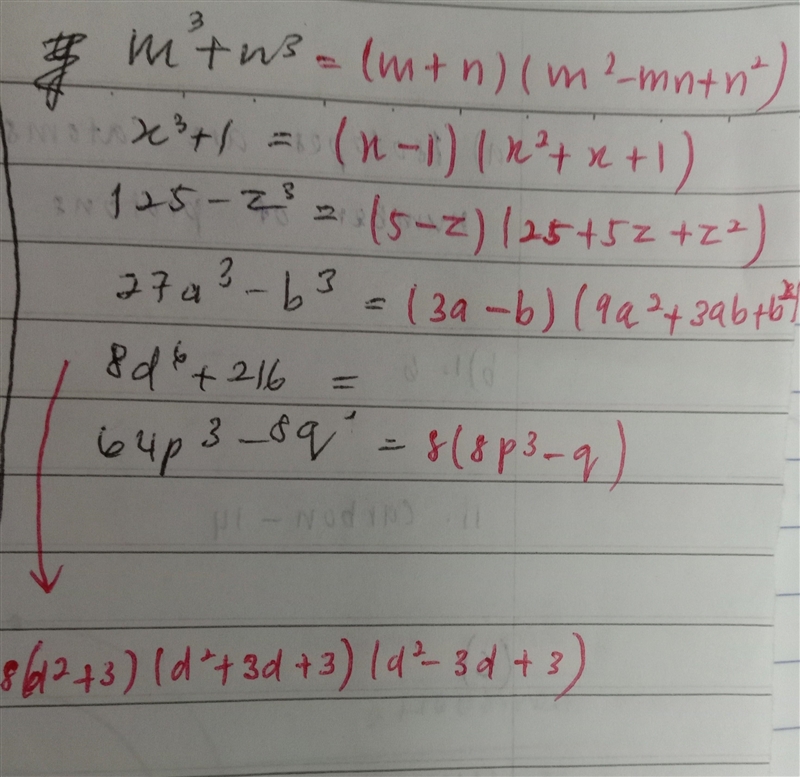 m³+n³ = (m+n)(m²-mn+n²)
x³+1 = (x-1)(x²+x+1)
125-z³ = (5-z)(25+5z+z²)
27a³-b³ = (3a-b)(9a²+3ab+b²)
8d⁶+216 =
64p³-8q¹ = 8(8p³-q)
8(d²+3)(d²+3d+3)(d²-3d+3)